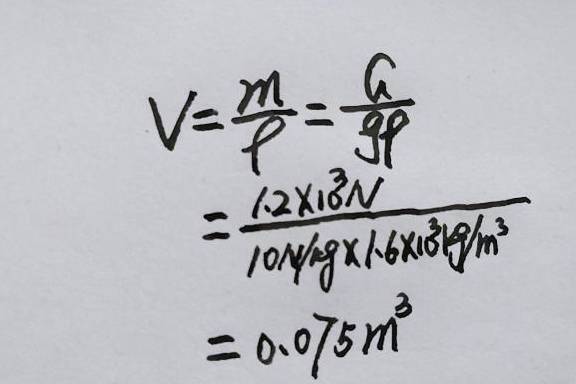 V = m/ρ = G/gρ
= 1.2×10³N / 10N/kg×1.6×10³kg/m³
= 0.075m³